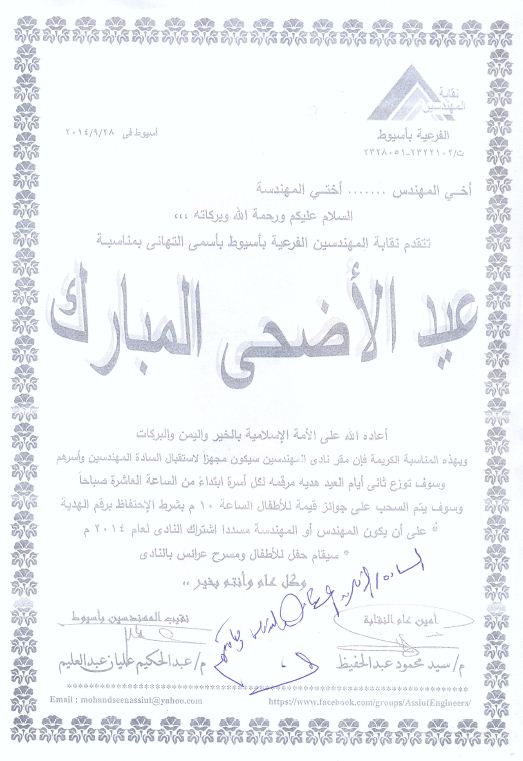 نقابة
المهندسين
الفرعية بأسيوط
ت/٢٣٢٢١٠٢-٢٣٢٨٠٥١
أسيوط فى ٢٠١٤/٩/٢٨
أخي المهندس ....... أختي المهندسة
السلام عليكم ورحمة الله وبركاته ,,,
تتقدم نقابة المهندسين الفرعية بأسيوط بأسمى التهانى بمناسبة
عيد الأضحى المبارك
أعاده الله على الأمة الإسلامية بالخير واليمن والبركات
وبهذه المناسبة الكريمة فإن مقر نادى المهندسين سيكون مجهزا لاستقبال السادة المهندسين وأسرهم
وسوف توزع ثانى أيام العيد هديه مرقمه لكل أسرة ابتداءً من الساعة العاشرة صباحاً
وسوف يتم السحب على جوائز قيمة للأطفال الساعة ١٠ م بشرط الإحتفاظ برقم الهدية
* على أن يكون المهندس أو المهندسة مسددا اشتراك النادى لعام ٢٠١٤ م
* سيقام حفل للأطفال ومسرح عرائس بالنادى
وكل عام وأنتم بخير ,,
أمين عام النقابة
نقيب المهندسين بأسيوط
م/ سيد محمود عبدالحفيظ
م/ عبدالحكيم عليان عبدالعليم
Email : mohandseenassiut@yahoo.com
https://www.facebook.com/groups/AssiutEngineers/